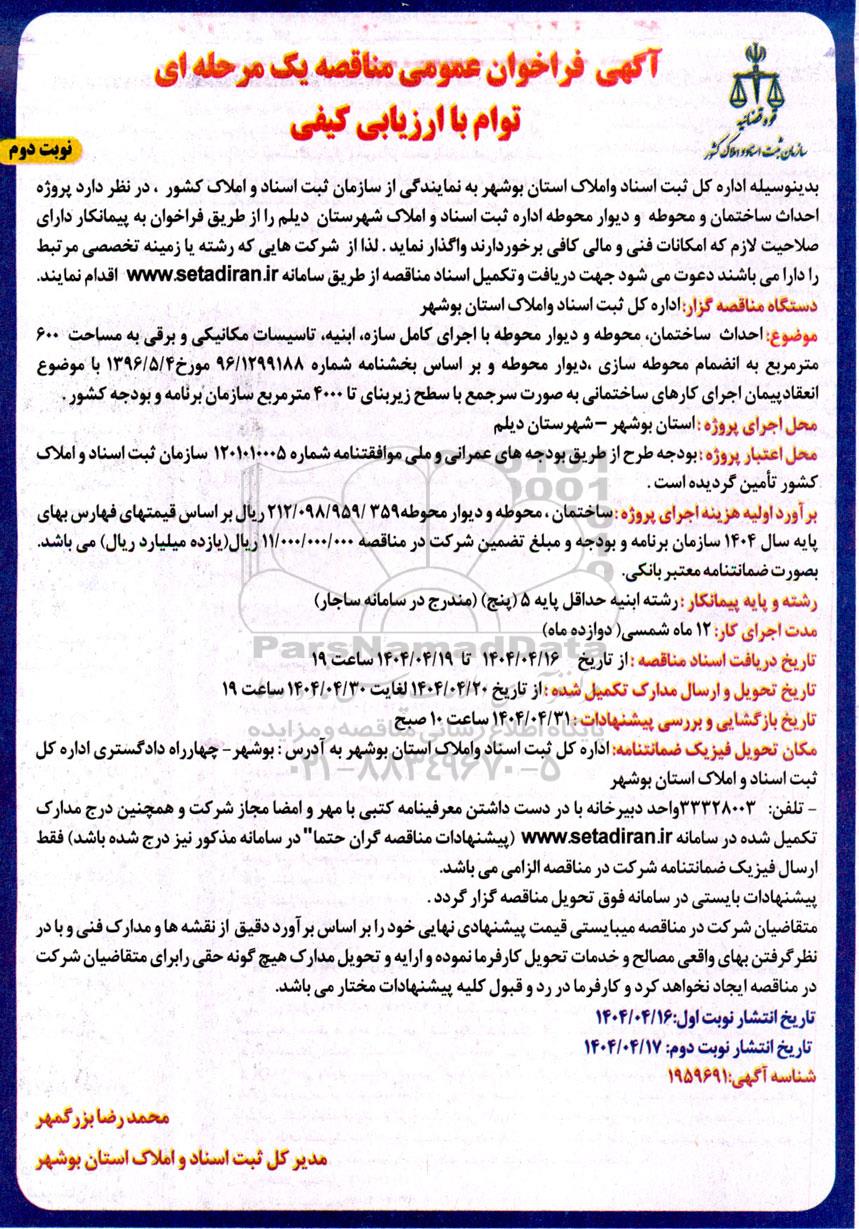 آگهی فراخوان عمومی مناقصه یک مرحله ای
توام با ارزیابی کیفی
قوه قضائیه
سازمان ثبت اسناد و املاک کشور
نوبت دوم
بدینوسیله اداره کل ثبت اسناد واملاک استان بوشهر به نمایندگی از سازمان ثبت اسناد و املاک کشور ، در نظر دارد پروژه
احداث ساختمان و محوطه و دیوار محوطه اداره ثبت اسناد و املاک شهرستان دیلم را از طریق فراخوان به پیمانکار دارای
صلاحیت لازم که امکانات فنی و مالی کافی برخوردارند واگذار نماید . لذا از شرکت هایی که رشته یا زمینه تخصصی مرتبط
را دارا می باشند دعوت می شود جهت دریافت وتکمیل اسناد مناقصه از طریق سامانه www.setadiran.ir اقدام نمایند.
دستگاه مناقصه گزار: اداره کل ثبت اسناد واملاک استان بوشهر
موضوع: احداث ساختمان، محوطه و دیوار محوطه با اجرای کامل سازه، ابنیه، تاسیسات مکانیکی و برقی به مساحت ۶۰۰
مترمربع به انضمام محوطه سازی ،دیوار محوطه و بر اساس بخشنامه شماره ۹۶/۱۲۹۹۱۸۸ مورخ۱۳۹۶/۵/۴ با موضوع
انعقادپیمان اجرای کارهای ساختمانی به صورت سرجمع با سطح زیربنای تا ۴۰۰۰ مترمربع سازمان برنامه و بودجه کشور .
محل اجرای پروژه : استان بوشهر –شهرستان دیلم
محل اعتبار پروژه : بودجه طرح از طریق بودجه های عمرانی و ملی موافقتنامه شماره ۱۲۰۱۰۱۰۰۰۵ سازمان ثبت اسناد و املاک
کشور تأمین گردیده است .
برآورد اولیه هزینه اجرای پروژه : ساختمان ، محوطه و دیوار محوطه۳۵۹ /۲۱۲/۰۹۸/۹۵۹ ریال بر اساس قیمتهای فهارس بهای
پایه سال ۱۴۰۴ سازمان برنامه و بودجه و مبلغ تضمین شرکت در مناقصه ۱۱/۰۰۰/۰۰۰/۰۰۰ ریال(یازده میلیارد ریال) می باشد.
بصورت ضمانتنامه معتبر بانکی.
رشته و پایه پیمانکار : رشته ابنیه حداقل پایه ۵ (پنج) (مندرج در سامانه ساجار)
مدت اجرای کار: ۱۲ ماه شمسی( دوازده ماه)
ParsNamadData
تاریخ دریافت اسناد مناقصه : از تاریخ ۱۴۰۴/۰۴/۱۶ تا ۱۴۰۴/۰۴/۱۹ ساعت ۱۹
تاریخ تحویل و ارسال مدارک تکمیل شده : از تاریخ ۱۴۰۴/۰۴/۲۰ لغایت ۱۴۰۴/۰۴/۳۰ ساعت ۱۹
تاریخ بازگشایی و بررسی پیشنهادات : ۱۴۰۴/۰۴/۳۱ ساعت ۱۰ صبح
پایگاه اطلاع رسانی مناقصه و مزایده
مکان تحویل فیزیک ضمانتنامه: اداره کل ثبت اسناد واملاک استان بوشهر به آدرس : بوشهر- چهارراه دادگستری اداره کل
۰۲۱-۸۸۳۴۹۶۷۰-۵
ثبت اسناد و املاک استان بوشهر
- تلفن: ۳۳۳۲۸۰۰۳واحد دبیرخانه با در دست داشتن معرفینامه کتبی با مهر و امضا مجاز شرکت و همچنین درج مدارک
تکمیل شده در سامانه www.setadiran.ir (پیشنهادات مناقصه گران حتما" در سامانه مذکور نیز درج شده باشد) فقط
ارسال فیزیک ضمانتنامه شرکت در مناقصه الزامی می باشد.
پیشنهادات بایستی در سامانه فوق تحویل مناقصه گزار گردد .
متقاضیان شرکت در مناقصه میبایستی قیمت پیشنهادی نهایی خود را بر اساس برآورد دقیق از نقشه ها و مدارک فنی و با در
نظرگرفتن بهای واقعی مصالح و خدمات تحویل کارفرما نموده و ارایه و تحویل مدارک هیچ گونه حقی رابرای متقاضیان شرکت
در مناقصه ایجاد نخواهد کرد و کارفرما در رد و قبول کلیه پیشنهادات مختار می باشد.
تاریخ انتشار نوبت اول:۱۴۰۴/۰۴/۱۶
تاریخ انتشار نوبت دوم: ۱۴۰۴/۰۴/۱۷
شناسه آگهی:۱۹۵۹۶۹۱
محمد رضا بزرگمهر
مدیر کل ثبت اسناد و املاک استان بوشهر